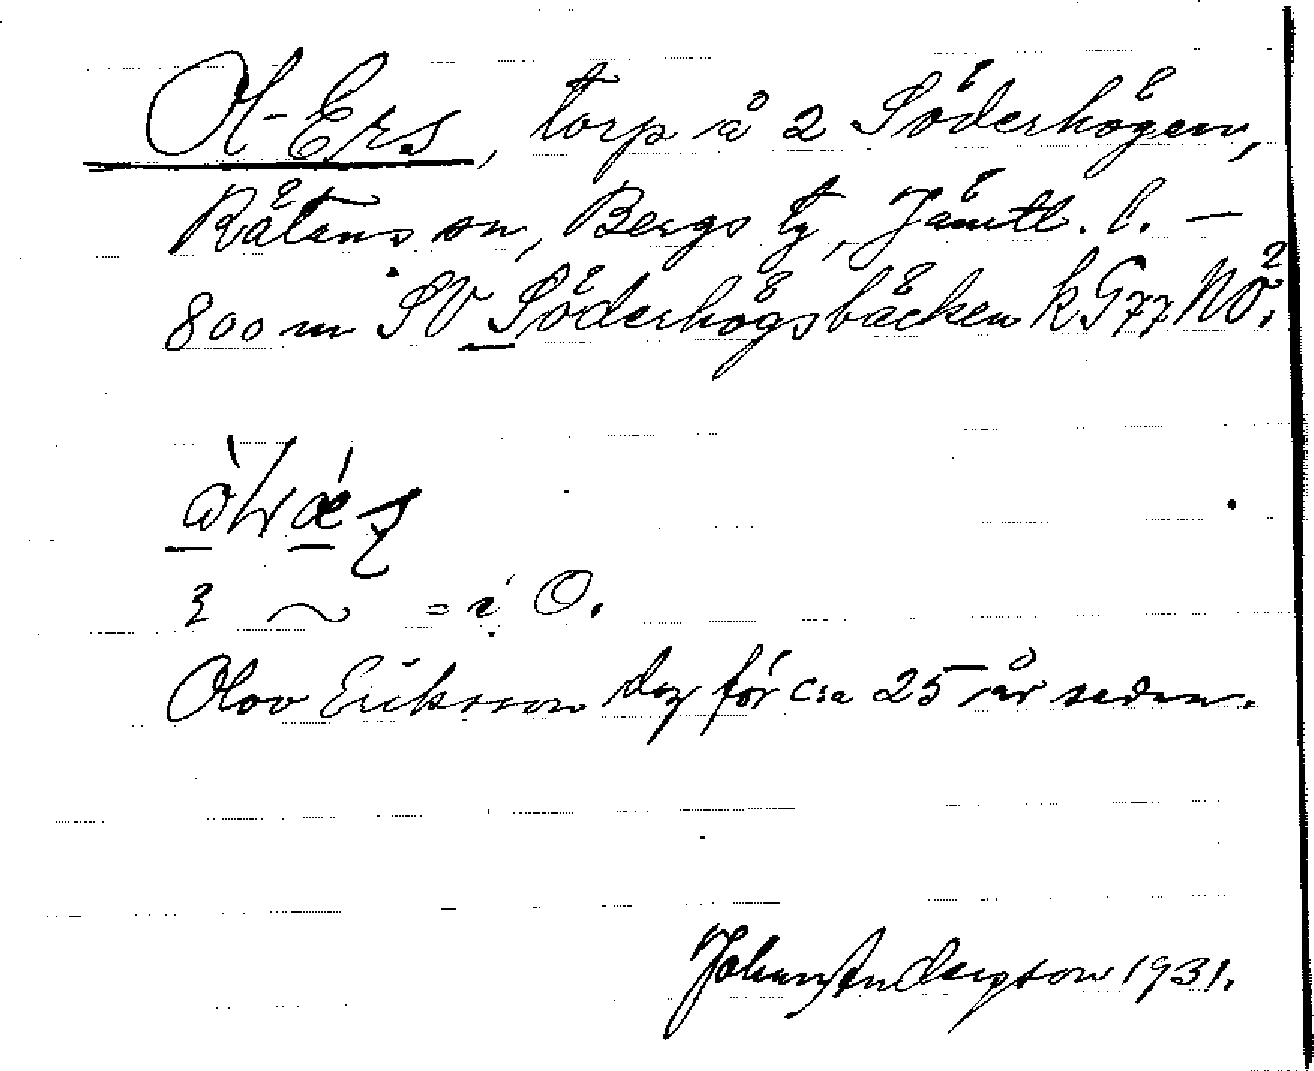 Ol-Ers, torp å 2 Söderhögen,
Rätans sn, Bergs tg, Jämtl. l. —
800 m SV Söderhögsbäcken k G77 NO².
= i O.
Olov Eriksson dog för c:a 25 år sedan.
Johan Andersson 1931.